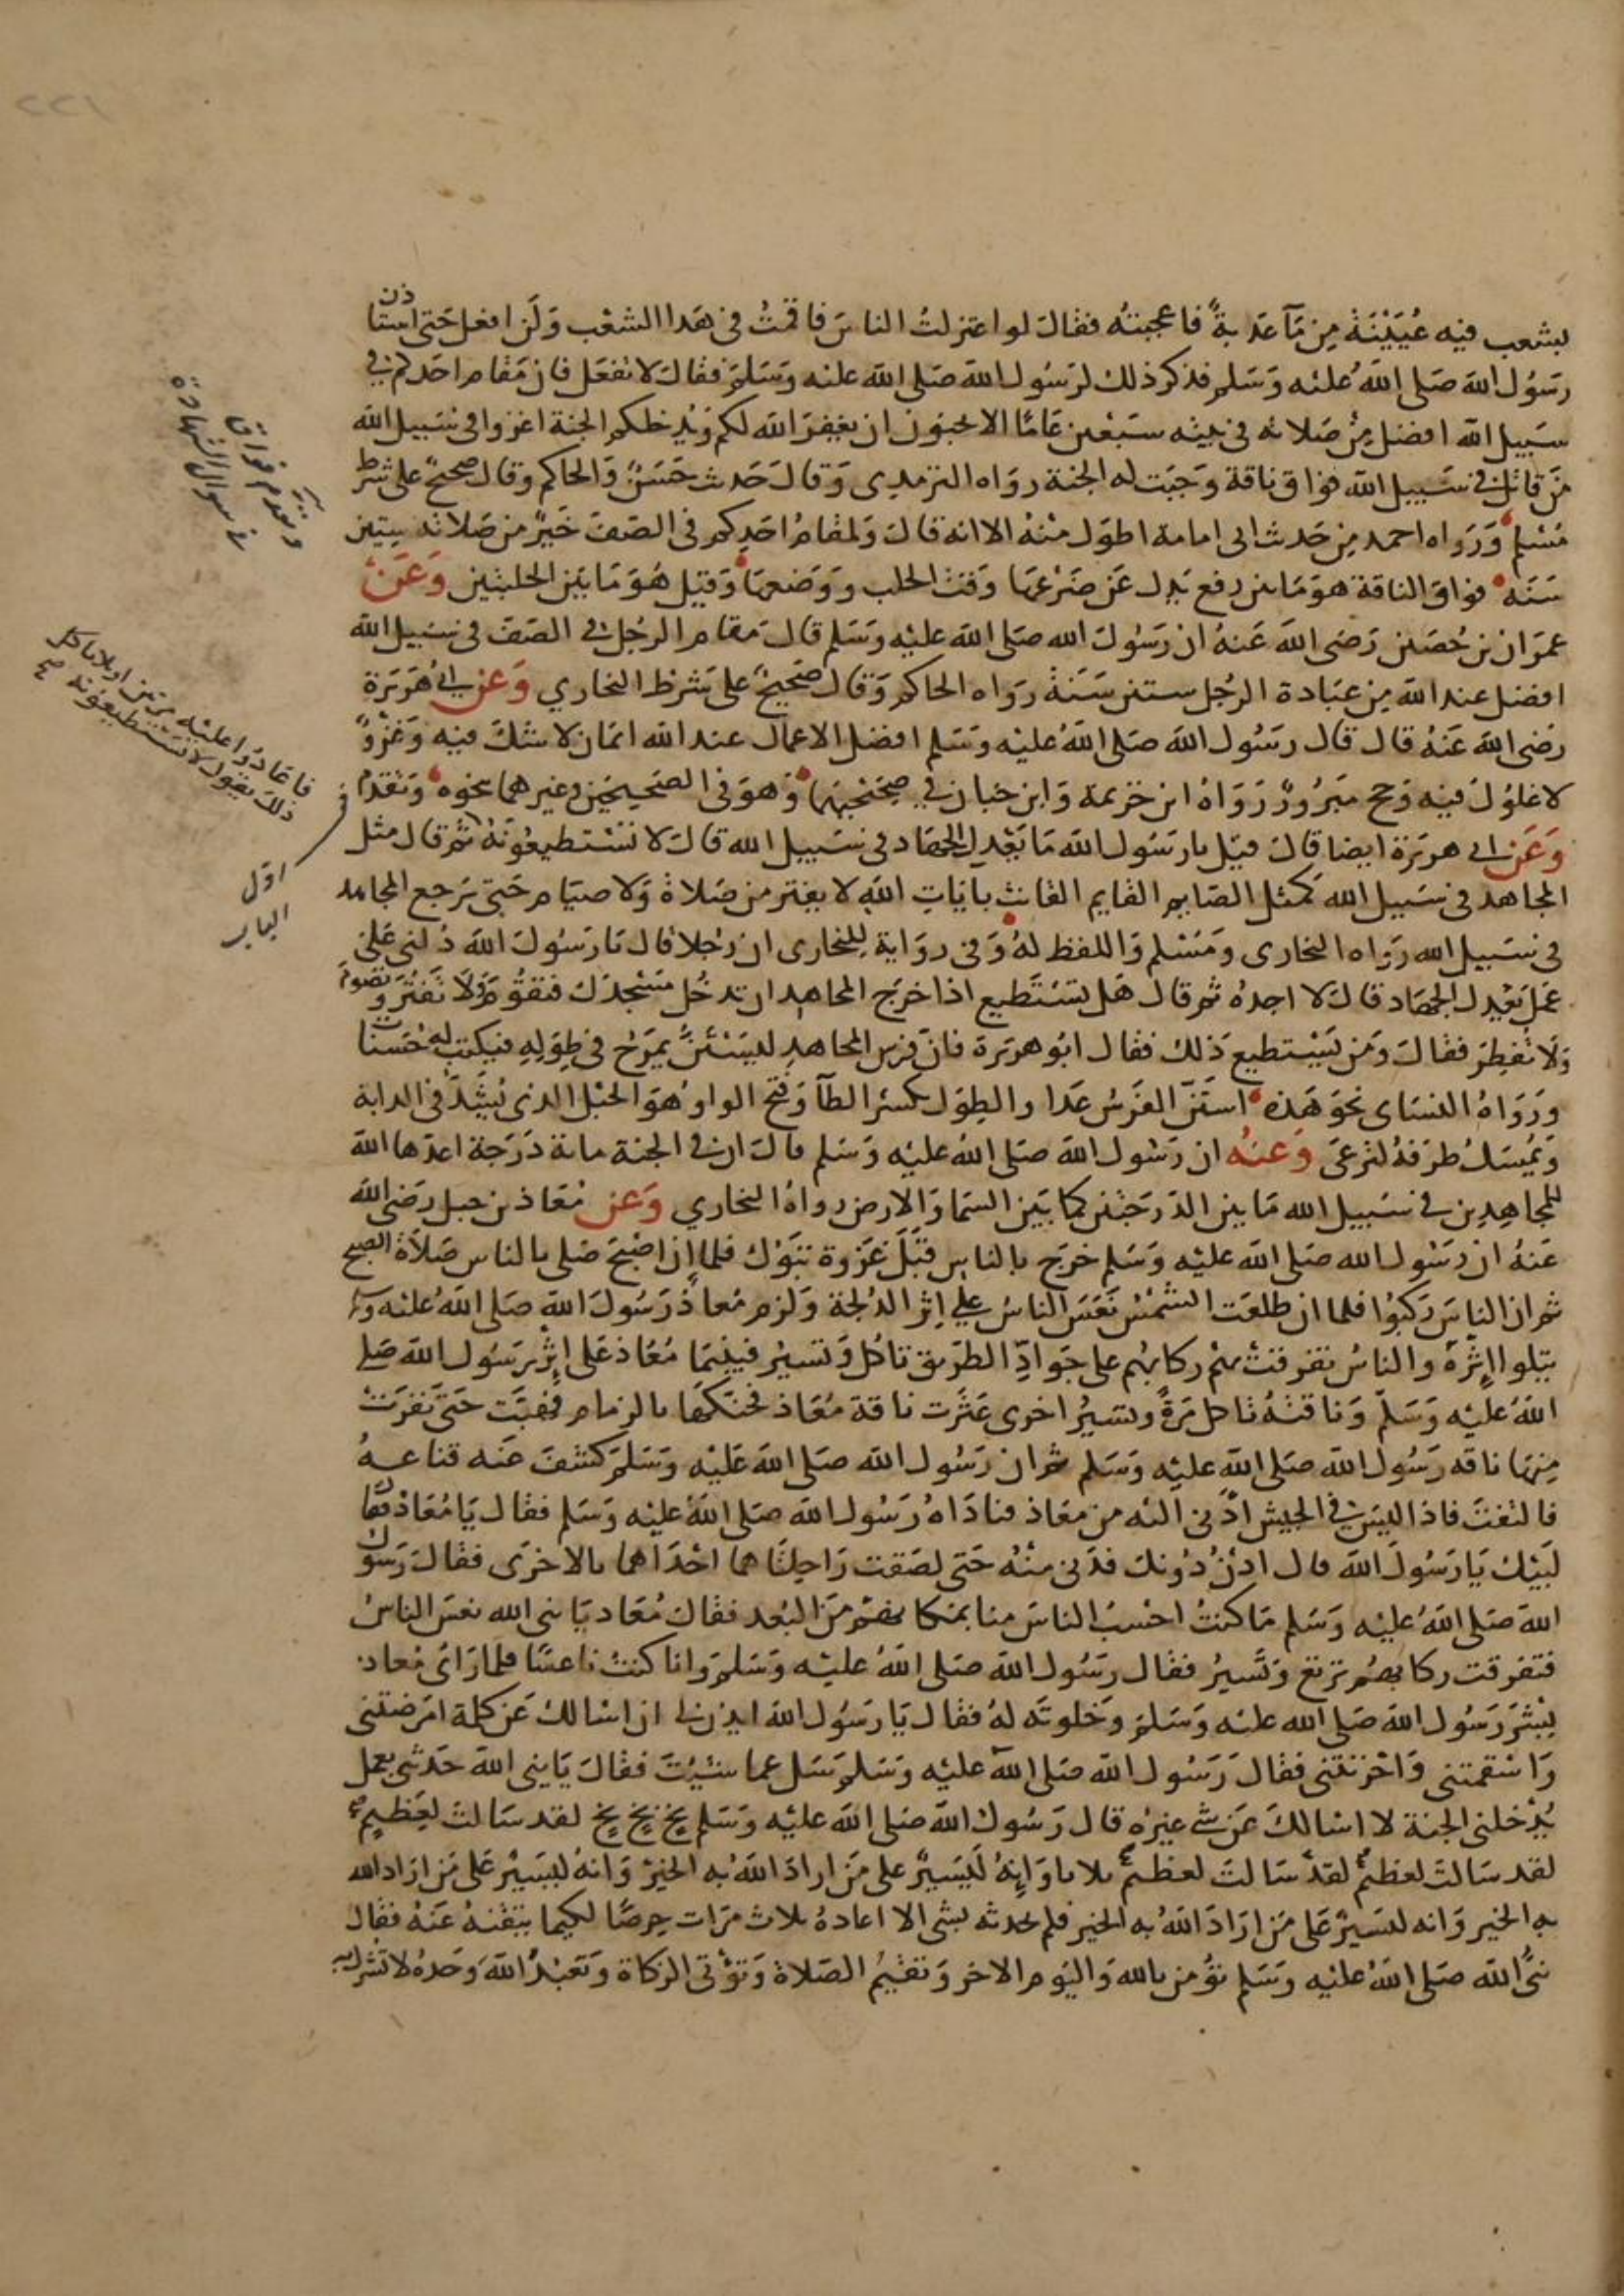 بشعب فيه عُيَيْنَة مِن مَآ عَذبةً فاعجبته فقال لو اعتزلتُ الناسَ فاقمتُ في هَذا الشعْب وَلَن افعل حَتى استاذن
رسُول الله صَلى اللهُ عليْه وَسَلم فذكر ذلك لرَسُول الله صَلى الله عليْه وَسَلمَ فقال لا تفعَل فان مَقام احَدكم في
سَبيل الله افضل مِنْ صَلاته في بيته سَبْعين عَامًا الا تحبون ان يغفِرَ الله لكم وَيُدخلكم الجنة اغزوا في سَبيل الله
مَن قاتل في سَبيل الله فواق ناقة وَجبَت له الجنة رواه الترمذي وَقال حَدِيث حَسَنٌ وَالحاكم وقال صحيحٌ على شرط
مُسْلم وَرَواه احمد مِن حَديث ابي امامة اطوَل منْهُ الا انه قال وَلمقامُ احَدِكم في الصَف خَيرٌ من صَلاته ستين
سَنَه فواق الناقة هوَ مَا بين رفع يَدك عَن ضَرْعهَا وَقت الحلب وَوَضعهَا وَقيْل هُوَ مَا بَيْن الحلبتين وَعَن
عمرَان بن حُصَين رَضي الله عَنهُ ان رَسُول الله صَلى الله عليْه وَسَلم قال مَقام الرجُل في الصَف في سَبيل الله
افضل عند الله مِن عبَادة الرجُل ستين سَنَة رَواه الحاكم وَقال صَحِيحٌ على شرط البخاري وَعَن ابي هُرَيرَة
رَضي الله عَنهُ قال قال رَسُول الله صَلى اللهُ عليْه وَسَلم افضل الاعمال عند الله ايمَان لا شكَ فيه وَغزوٌ
لا غلوُل فيْه وَحج مَبرُورٌ رَوَاهُ ابن خزيمة وَابن حبان في صحيحيهما وَهوَ في الصحيحين وغيرهما بنحوه وَتقدم
وَعَن ابي هرَيرَة ايضا قال قيْل يارَسُول الله مَا يَعْدِل الجهَاد في سَبيل الله قال لا تسْتَطيعُونَهُ ثم قال مثل
المجاهد في سَبيل الله كمثل الصَايم القايم القانت بايَاتِ الله لا يفتر من صَلاة وَلا صيَام حَتى يَرجع المجاهد
في سَبيل الله رَواه البخارى ومُسْلم وَاللفظ لهُ وَفي روَاية للبخارى ان رَجلا قال يَا رَسُول الله دُلني عَلى
عَمَل يَعْدِل الجهَاد قال لا اجدُه ثم قال هَل تَسْتَطيع اذا خرَج المجاهد ان تدخُل مَسْجدَك فتقوُمَ وَلَا تَفتُرَ وَتصُومَ
وَلَا تُفطِرَ فقال وَمَن يَسْتطيع ذَلك فقال ابُو هرَيرَة فانَ فرس المجاهدِ ليَسْتَنُّ يمرَحُ في طِوَلِهِ فيكتب له حَسَنات
وَرَوَاهُ النسَاى نحوَ هَذه استَنّ الفَرَسُ عَدا والطِوَل بكسْر الطآ وَفتح الواو هُوَ الحَبْل الذي يُشَدّ في الدابة
وَيُمسَك طرَفهُ لترعَى وَعَنْه ان رَسُول الله صَلى اللهُ عليْه وَسَلم قال ان في الجنة مائة دَرَجَة اعدّها الله
للمجاهِدِين في سَبيل الله مَا بين الدَرَجَتين كما بَيَن السمَا وَالارض رواهُ البخاري وَعَن مُعَاذ بن جبل رَضي الله
عَنهُ ان رَسُول الله صَلى الله عليْه وَسَلم خرَج بالناس قبَلَ غَزوة تبَوْك فلما ان اصْبحَ صَلى بالناس صَلَاة الصبح
ثم ان الناسَ رَكبوُا فلما ان طلعَت الشمْسُ نَعَسَ الناسُ على اِثر الدُلجة وَلزم مُعاذٌ رَسُول الله صَلى اللهُ عليْه وسَلم
يتلوا اِثرَهُ والناسُ تفرقتْ بهم ركابُهم على جَوَادِّ الطرَيق تاكل وَتسير فبينمَا مُعَاذ على اِثر رَسُول الله صَلى
اللهُ عليْه وَسَلَم وَناقتهُ تاكل مَرَةً وتسيرُ اخرى عَثرَت ناقة مُعَاذ فحَنكهَا بالزمام فهَبَّت حَتى نفرَتْ
مِنهَا ناقه رَسُول الله صَلى الله عليْه وَسَلم ثم ان رَسُول الله صَلى الله عَليْه وَسَلمَ كشفَ عَنه قناعهُ
فالتفتَ فاذا ليسَ في الجيش ادْنى اليْه من مَعَاذ فنادَاهُ رَسُول الله صَلى اللهُ عليْه وَسَلم فقال يَا مُعَاذ فقال
لَبَيْك يَا رَسُولَ الله قال ادنُ دُونك فدَنى منهُ حَتى لصَقت رَاحِلتاهما احْدَاهما بالاخرَى فقال رَسُول
الله صَلى اللهُ عليْه وَسَلم مَا كنتُ احْسبُ الناسَ منا بمكانهم مَنَ البُعد فقال مُعَاد يَا نبى الله نعسَ الناسُ
فتفرقت ركابهُم ترتعُ وَتسيرُ فقال رَسُول الله صَلى اللهُ عليْه وَسَلمَ وانا كنتُ ناعسًا فلما رَاى مُعاد
بِشرَ رَسُول الله صَلى الله عليْه وَسَلمَ وَخلوتَه لهُ فقال يَا رَسُول الله ايذن لى ان اسَالك عَن كلمة امرَضتني
وَاسْقمتني وَاحْزنتني فقال رَسُول الله صَلى اللهُ عليْه وَسَلمَ سَل عما شئتَ فقال يَا نبى الله حَدثنى بعمل
يُدْخلنى الجنة لا اسَالكَ عَن شي غيرُه قال رَسُول الله صَلى الله عليْه وَسَلم بخ بخ بخ لقد سَالتَ لعَظيمٍ
لقد سَالتَ لعظيمٍ لقدْ سَالتَ لعظيمٍ ثلاثا وَانِهُ لَيَسيرٌ على مَن ارادَ اللهُ به الخيرَ وَانهُ ليَسيرٌ عَلى مَن ارَادَ الله
به الخير وَانه ليَسيرٌ عَلى مَن ارَادَ اللهُ به الخير فلم يحدثه بشى الا اعادهُ ثلاث مرَات حِرصًا لكيما يتقنهُ عَنهُ فقال
نبيُّ الله صَلى اللهُ عليْه وَسَلم تؤمن بالله وَاليَوم الاخر وَتقيْمُ الصَلاة وَتؤتى الزكاة وَتعَبْدُ الله وَحدَهُ لا تشرك به
فاعَادوا عليْه مرتين او ثلاثا كل
ذلك يقول لا تستطيعونه صح
في
اوّل
الباب